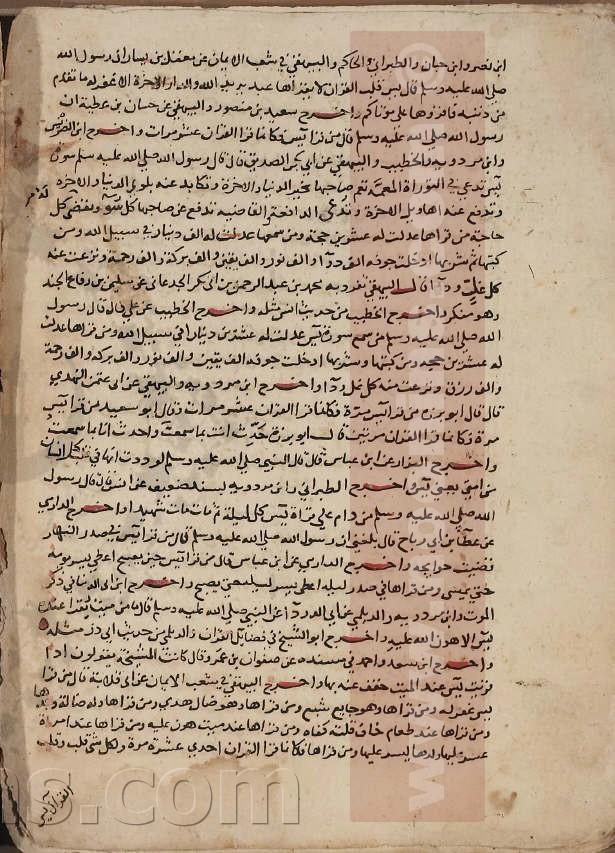 ابن نصر وابن حبان والطبراني والحاكم والبيهقي في شعب الايمان عن معقل بن يسار ان رسول الله
صلى الله عليه وسلم قال يس قلب القران لا يقراها عبد يريد الله والدار الاخرة الا غفر له ما تقدم
من ذنبه فاقروها على موتاكم واخرج سعيد بن منصور والبيهقي عن حسان بن عطية ان
رسول الله صلى الله عليه وسلم قال من قرا يس فكانما قرا القران عشر مرات واخرج ابن الضريس
وابن مردويه والخطيب والبيهقي عن ابي بكر الصديق قال قال رسول الله صلى الله عليه وسلم سورة
يس تدعى في التوراة المعمة تعم صاحبها بخير الدنيا والاخرة وتكابد عنه بلوى الدنيا والاخرة
وتدفع عنه اهاويل الاخرة وتدعى الدافعة القاضية تدفع عن صاحبها كل سوء وتقضى كل
حاجة من قراها عدلت له عشرين حجة ومن سمعها عدلت له الف دينار في سبيل الله ومن
كتبها ثم شربها ادخلت جوفه الف دوا والف نور والف يقين والف بركة والف رحمة ونزعت عنه
كل غل ودا قال البيهقي تفرد به محمد بن عبد الرحمن بن ابي بكر الجدعاني عن سليمن بن رفاع الجند
وهو منكر واخرج الخطيب من حديث انس مثله واخرج الخطيب عن علي قال قال رسول
الله صلى الله عليه وسلم من سمع سورة يس عدلت له عشرين دينارا في سبيل الله ومن قراها عدلت
له عشرين حجه ومن كتبها وشربها ادخلت جوفه الف يقين والف نور والف بركه والف رحمة
والف رزق ونزعت منه كل غل ودا واخرج ابن مردويه والبيهقي عن ابي عثمن النهدي
قال قال ابو برزة من قرا يس مرة فكانما قرا القران عشر مرات وقال ابو سعيد من قرا يس
مرة فكانما قرا القران مرتين قال ابو برزة حدث انت بما سمعت واحدث انا بما سمعت
واخرج البزار عن ابن عباس قال قال النبي صلى الله عليه وسلم لوددت انها في قلب كل انسان
من امتي يعني يس واخرج الطبراني وابن مردويه بسند ضعيف عن انس قال قال رسول
الله صلى الله عليه وسلم من دام على قراة يس كل ليلة ثم مات مات شهيدا واخرج الدارمي
عن عطا بن ابي رباح قال بلغني ان رسول الله صلى الله عليه وسلم قال من قرا يس في صدر النهار
قضيت حوايجه واخرج الدارمي عن ابن عباس قال من قرا يس حين يصبح اعطى يسر يومه
حتى يمسى ومن قراها في صدر ليله اعطى يسر ليله حتى يصبح واخرج ابن ابي الدنيا في ذكر
الموت وابن مردويه والديلمي عن ابي الدردا عن النبي صلى الله عليه وسلم قال ما من ميت يقرا عند
يس الا هون الله عليه واخرج ابو الشيخ في فضايل القران والديلمي من حديث ابي ذر مثله
واخرج ابن سعد واحمد في مسنده عن صفوان بن عمرو قال كانت المشيخة يقولون اذا
قريت يس عند الميت خفف عنه بها واخرج البيهقي في شعب الايمان عن ابي قلابة قال من قرا
يس غفر له ومن قراها وهو جايع شبع ومن قراها وهو ضال هدي ومن قراها وله ضالة وجدها
ومن قراها عند طعام خاف قلته كفاه ومن قراها عند ميت هون عليه ومن قراها عند امراة
عسر عليها ولدها يسر عليها ومن قراها فكانما قرا القران احدى عشرة مرة ولكل شي قلب وقلب
القران يس